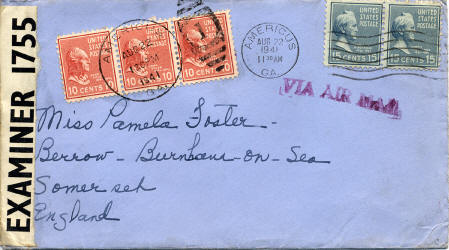 EXAMINER 1755
UNITED STATES POSTAGE
10 CENTS 10
UNITED STATES POSTAGE
10 CENTS 10
UNITED STATES POSTAGE
10 CENTS 10
1941
GA.
AMERICUS
AUG 22
1941
11 30 AM
GA.
UNITED STATES POSTAGE
15 CENTS 15
UNITED STATES POSTAGE
CENTS 15
VIA AIR MAIL
Miss Pamela Foster -
Berrow - Burnham-on-Sea
Somerset
England